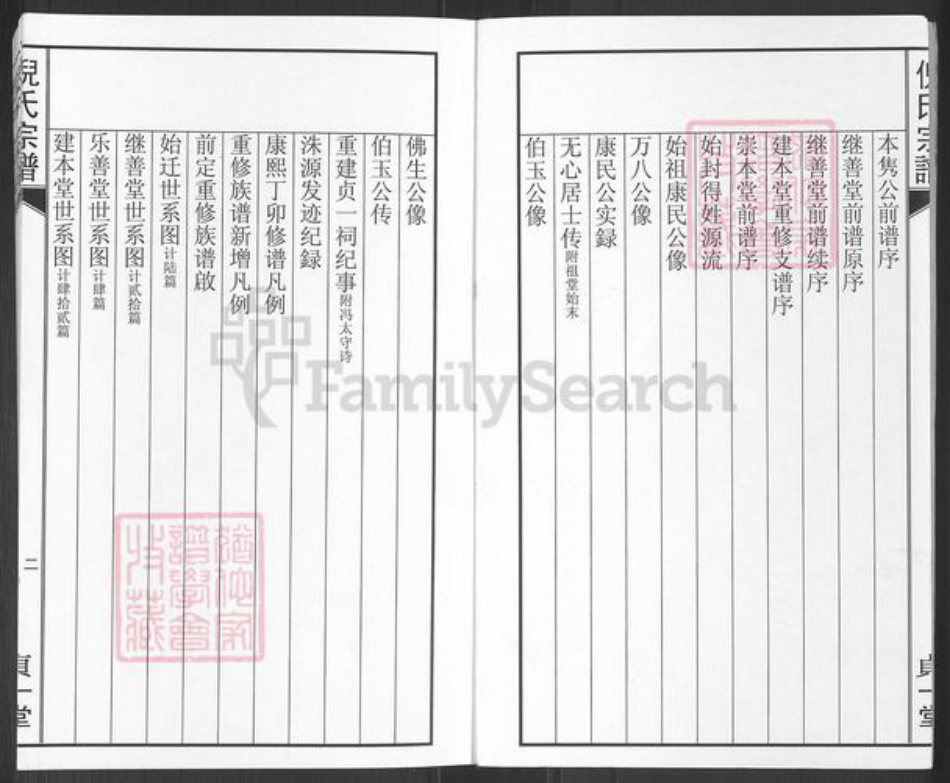 倪氏宗譜
本隽公前谱序
继善堂前谱原序
继善堂前谱续序
建本堂重修支谱序
崇本堂前谱序
始封得姓源流
始祖康民公像
万八公像
康民公实録
无心居士传附祖堂始末
伯玉公像
貞一堂
佛生公像
伯玉公传
重建贞一祠纪事附冯太守诗
洙源发迹纪録
康熙丁卯修谱凡例
重修族谱新增凡例
前定重修族谱啟
始迁世系图计陆篇
继善堂世系图计贰拾篇
乐善堂世系图计肆篇
建本堂世系图计肆拾贰篇
倪氏宗譜
二
貞一堂
FamilySearch